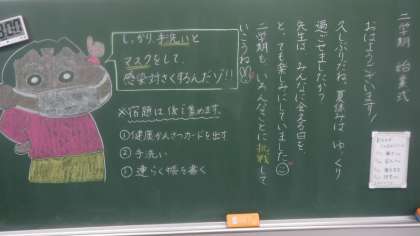 二学期 始業式
おはようございます!
久しぶりだね。夏休みは ゆっくり
過ごせましたか?
先生は みんなに会える日を、
とっても楽しみにしていました
二学期も、いろんなことに挑戦して
いこうね
しっかり手洗いと
マスクをして、
感染対さくするんだゾ!!
※宿題は後で集めます。
①健康かんさつカードを出す
②手洗い
③連らく帳を書く